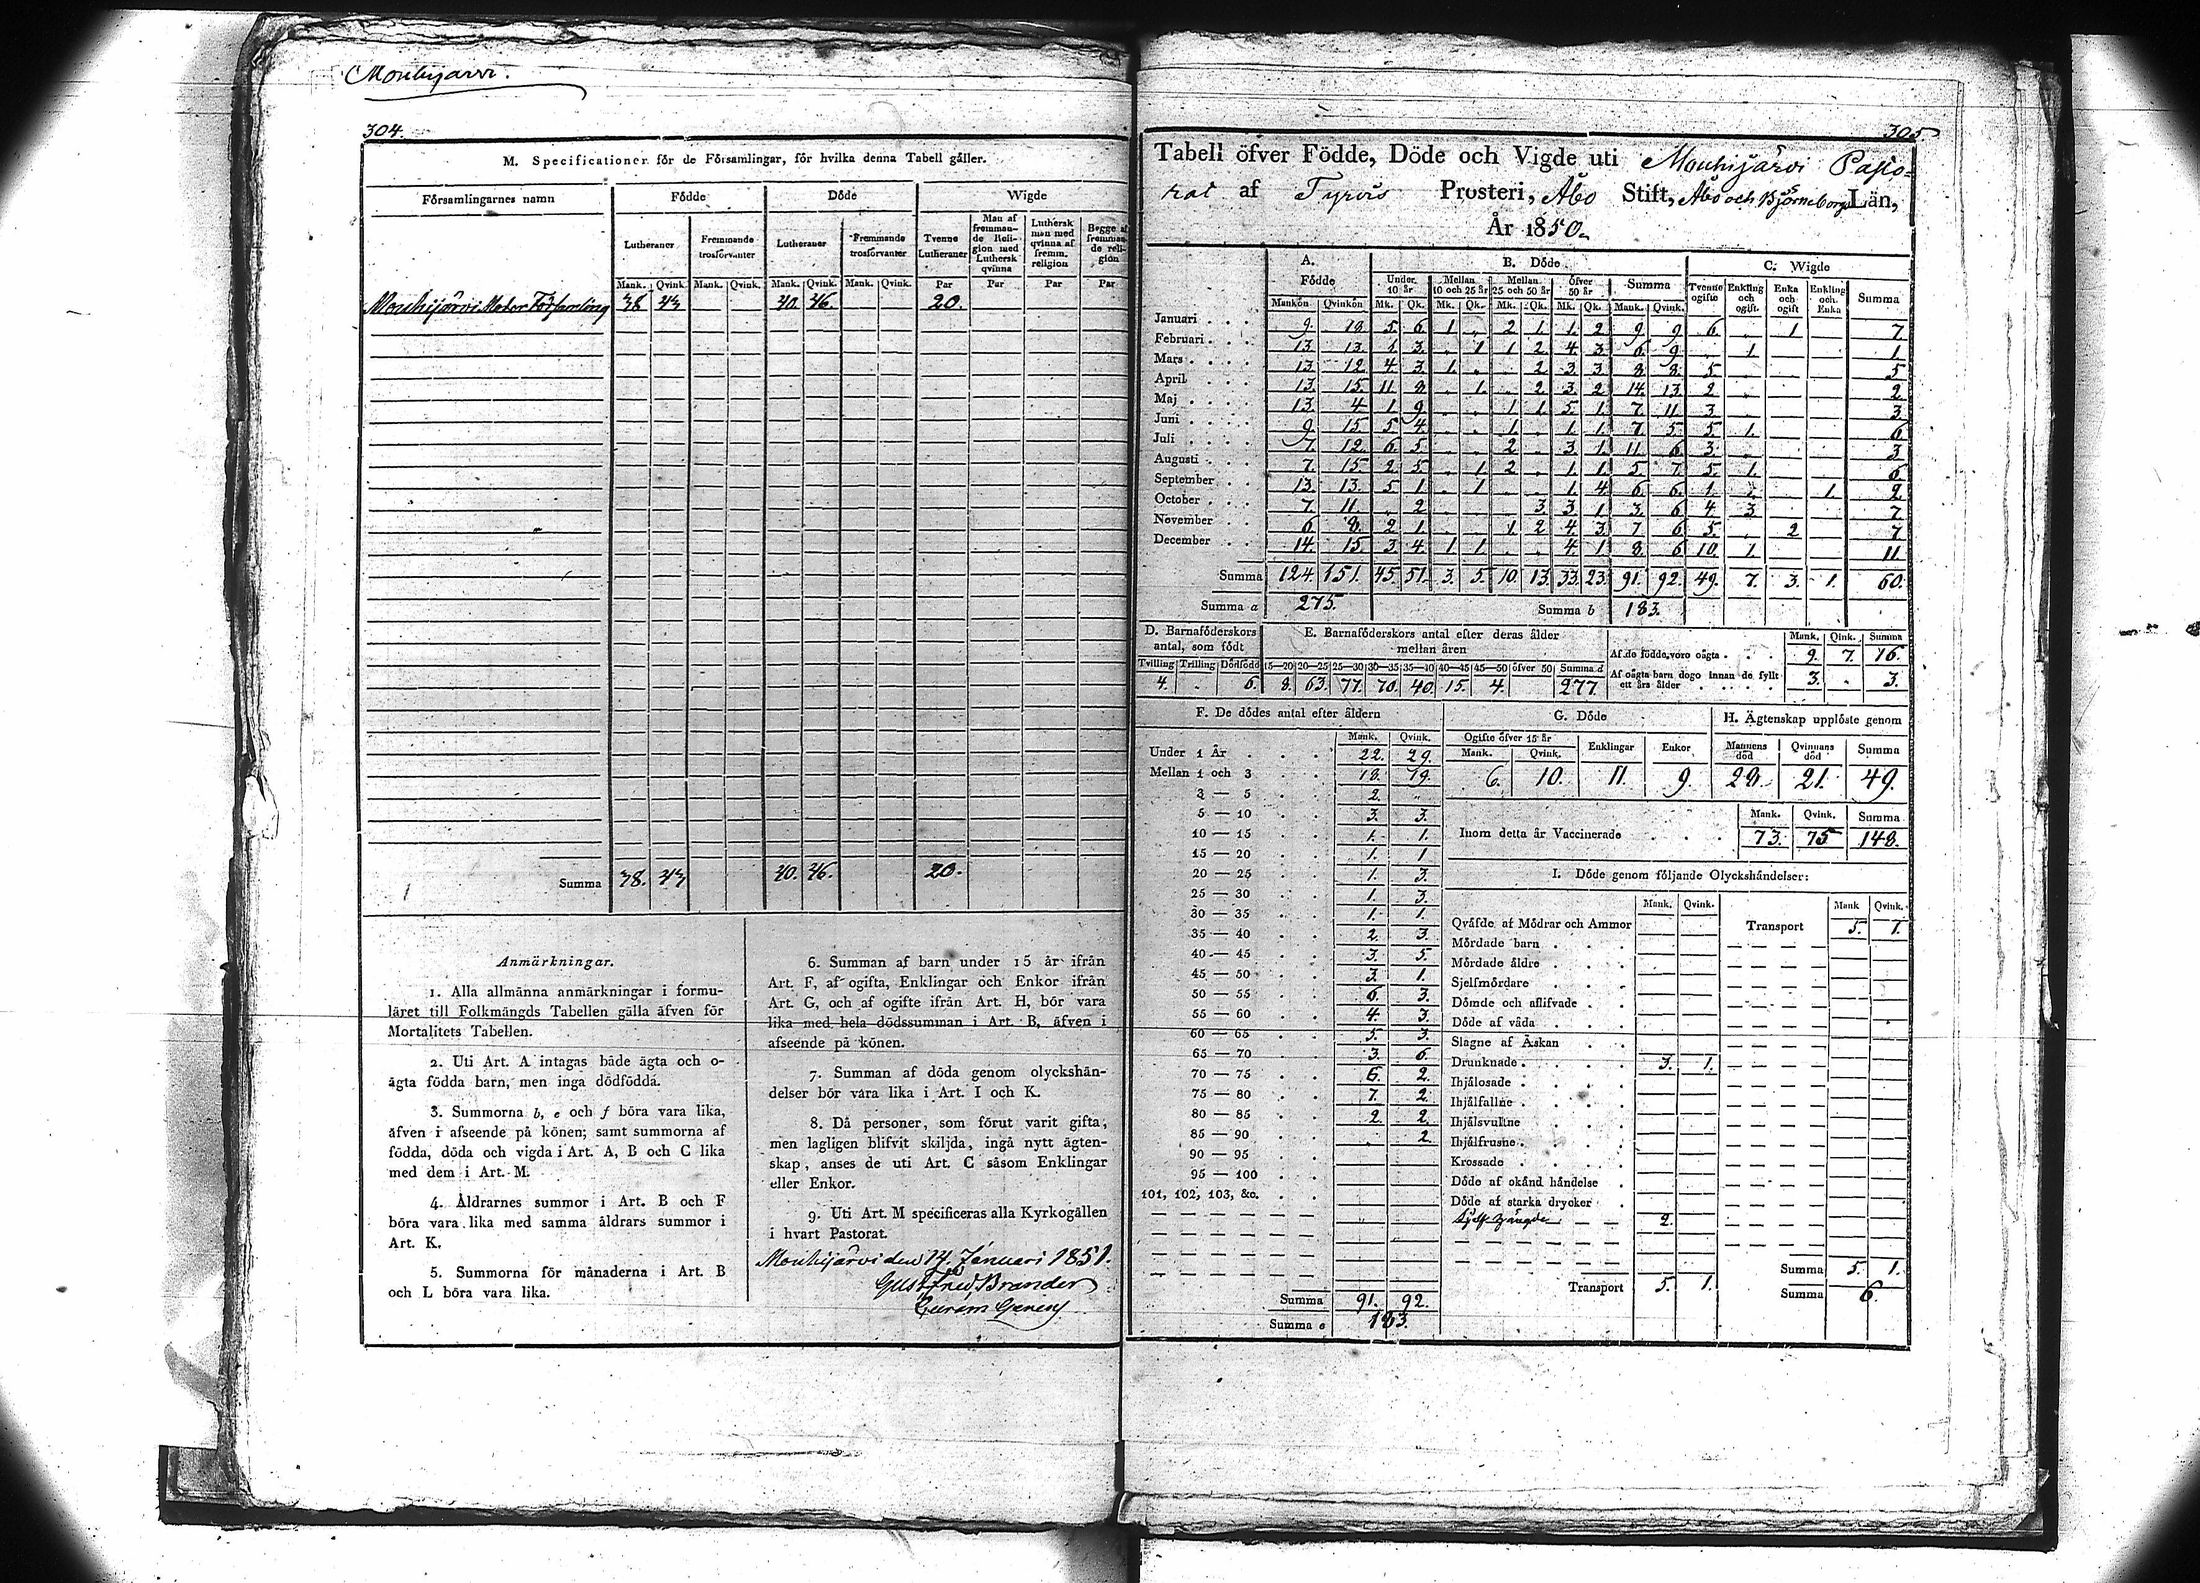 Mouhijärvi.
304.
M. Specificationer för de Församlingar, för hvilka denna Tabell gäller.
Församlingarnes namn | Födde | Döde | Wigde
Lutheraner | Fremmande trosförvanter | Lutheraner | Fremmande trosförvanter | Tvenne Lutheraner | Man af fremmande Religion med Luthersk qvinna | Luthersk man med qvinna af fremm. religion | Begge af fremmande religion
Mank. Qvink. Mank. Qvink. Mank. Qvink. Mank. Qvink. Par Par Par Par
Mouhijärvi Moder Församling 38 43 40. 46. 20.
Summa 38. 43 40. 46. 20.
Anmärkningar.
1. Alla allmänna anmärkningar i formu-
läret till Folkmängds Tabellen gälla äfven för
Mortalitets Tabellen.
2. Uti Art. A intagas både ägta och o-
ägta födda barn, men inga dödfödda.
3. Summorna b, e och f böra vara lika,
äfven i afseende på könen; samt summorna af
födda, döda och vigda i Art. A, B och C lika
med dem i Art. M.
4. Åldrarnes summor i Art. B och F
böra vara lika med samma åldrars summor i
Art. K.
5. Summorna för månaderna i Art. B
och L böra vara lika.
6. Summan af barn under 15 år ifrån
Art. F, af ogifta, Enklingar och Enkor ifrån
Art. G, och af ogifte ifrån Art. H, bör vara
lika med hela dödssumman i Art. B, äfven i
afseende på könen.
7. Summan af döda genom olyckshän-
delser bör vara lika i Art. I och K.
8. Då personer, som förut varit gifta,
men lagligen blifvit skiljda, ingå nytt ägten-
skap, anses de uti Art. C såsom Enklingar
eller Enkor.
9. Uti Art. M specificeras alla Kyrkogällen
i hvart Pastorat.
Mouhijärvi den 14. Januari 1851.
Gust. Fred. Brander
305
Tabell öfver Födde, Döde och Vigde uti Mouhijärvi Pasto-
rat af Tyrvis Prosteri, Åbo Stift, Åbo och Björneborgs Län,
År 1850.
A. Födde | B. Döde | C. Wigde
Under 10 år | Mellan 10 och 25 år | Mellan 25 och 50 år | Öfver 50 år | Summa | Tvenne ogifte | Enkling och ogift. | Enka och ogift | Enkling och Enka | Summa
Mankön Qvinkön Mk. Qk. Mk. Qk. Mk. Qk. Mk. Qk. Mank. Qvink.
Januari 9. 18. 5 6 1 . 2 1 1 2 9. 9 6 . 1 7
Februari 13. 13. 1 3 . 1 1 2 4 3 6 9 . 1 1
Mars 13. 12 4 3 1 . . 2 3 3 8 8 5 5
April 13. 15 11 8 . 1 . 2 3 2 14 13 2 2
Maj 13. 4 1 9 . . 1 1 5 1 7 11 3 3
Juni 9. 15 5 4 . . 1 . 1 1 7 5 5 1 6
Juli 7. 12 6 5 . . 2 . 3 1 11 6 3 3
Augusti 7. 15 2 5 . 1 2 . 1 1 5 7 5 1 6
September 13. 13. 5 1 . 1 . . 1 4 6 6 1 . 1 2
October 7 11. . 2 . . . 3 3 1 3 6 4 3 7
November 6 8. 2 1 . . 1 2 4 3 7 6 5 . 2 7
December 14. 15 3 4 1 1 . . 4 1 8. 6 10. 1. 11
Summa 124. 151. 45. 51. 3. 5. 10. 13. 33. 23. 91. 92. 49. 7. 3. 1. 60.
Summa a 275. Summa b 183.
D. Barnaföderskors antal, som födt
Tvilling Trilling Dödfödd
4. . 6.
E. Barnaföderskors antal efter deras ålder mellan åren
15—20 20—25 25—30 30—35 35—40 40—45 45—50 öfver 50 Summa d
8. 63. 77. 70. 40. 15. 4. 277
Mank. Qink. Summa
Af de födde voro oägta 9. 7. 16.
Af oägta barn dogo innan de fyllt ett års ålder 3. . 3.
F. De dödes antal efter åldern
Mank. Qvink.
Under 1 År 22. 29.
Mellan 1 och 3 18. 19.
3 — 5 2. .
5 — 10 3. 3.
10 — 15 1. 1.
15 — 20 1. 1
20 — 25 1. 3.
25 — 30 1. 3.
30 — 35 1. 1.
35 — 40 2. 3.
40 — 45 3. 5.
45 — 50 3. 1.
50 — 55 6. 3.
55 — 60 4. 3.
60 — 65 5. 3.
65 — 70 3. 6.
70 — 75 6. 2.
75 — 80 7. 2.
80 — 85 2. 2.
85 — 90 . 2.
90 — 95
95 — 100
101, 102, 103, &c.
Summa 91. 92.
Summa e 183.
G. Döde
Ogifte öfver 15 år | Enklingar | Enkor
Mank. Qvink.
6. 10. 11. 9.
H. Ägtenskap upplöste genom
Mannens död | Qvinnans död | Summa
28. 21. 49.
Mank. Qvink. Summa
Inom detta år Vaccinerade 73. 75 148.
I. Döde genom följande Olyckshändelser:
Mank. Qvink. Mank Qvink.
Qväfde af Mödrar och Ammor
Transport 5. 1.
Mördade barn
Mördade äldre
Sjelfmördare
Dömde och aflifvade
Döde af våda
Slagne af Åskan
Drunknade 3. 1.
Ihjälosade
Ihjälfallne
Ihjälsvultne
Ihjälfrusne
Krossade
Döde af okänd händelse
Döde af starka drycker
Sjelf hängde 2.
Transport 5. 1.
Summa 5. 1.
Summa 6.